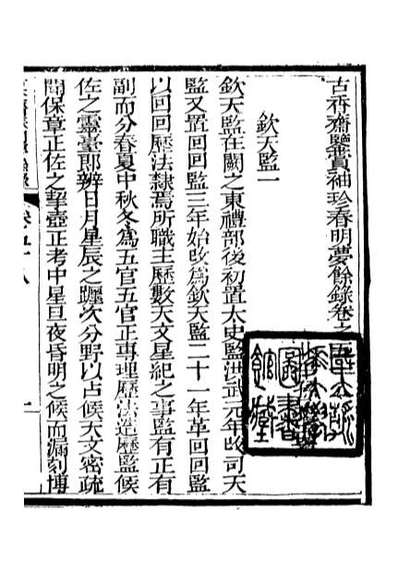 古香齋鑒賞袖珍春明夢餘錄卷之
欽天監一
欽天監在闕之東禮部後初置太史監洪武元年改司天
監又置回回監三年始改為欽天監二十一年革回回監
以回回歷法隸焉所職主歷數天文星紀之事監有正有
副而分春夏中秋冬為五官五官正專理歷法造歷監候
佐之靈臺郎辨日月星辰之躔次分野以占候天文密疏
問保章正佐之挈壺正考中星旦夜昏明之候而漏刻博